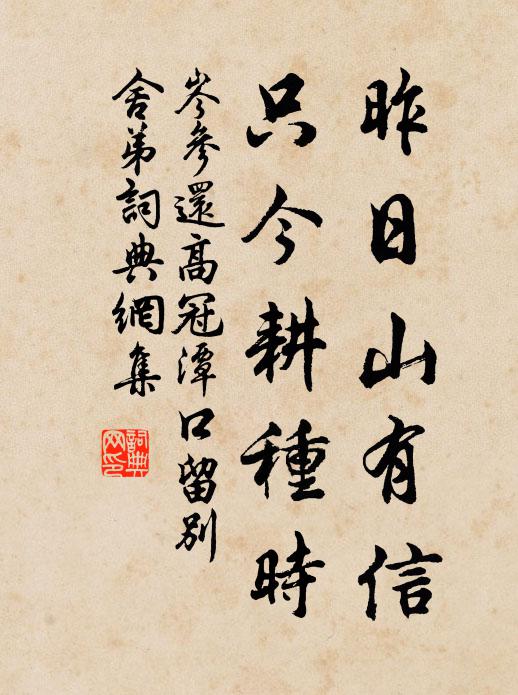 昨日山有信
只今耕種時
岑參還高冠潭口留別
舍弟詞典網集
詞典
网印